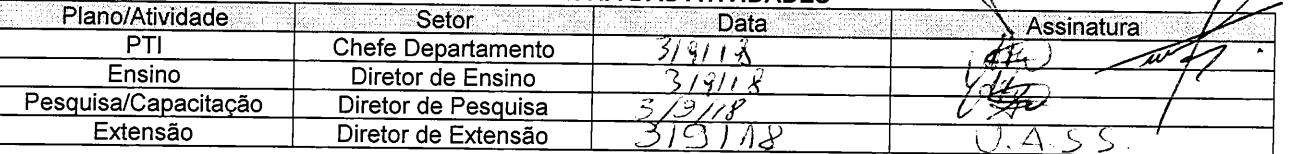 Plano/Atividade Setor Data Assinatura
PTI Chefe Departamento 3/9/18
Ensino Diretor de Ensino 3/9/18
Pesquisa/Capacitação Diretor de Pesquisa 3/9/18
Extensão Diretor de Extensão 3/9/18 U.A.S.S.